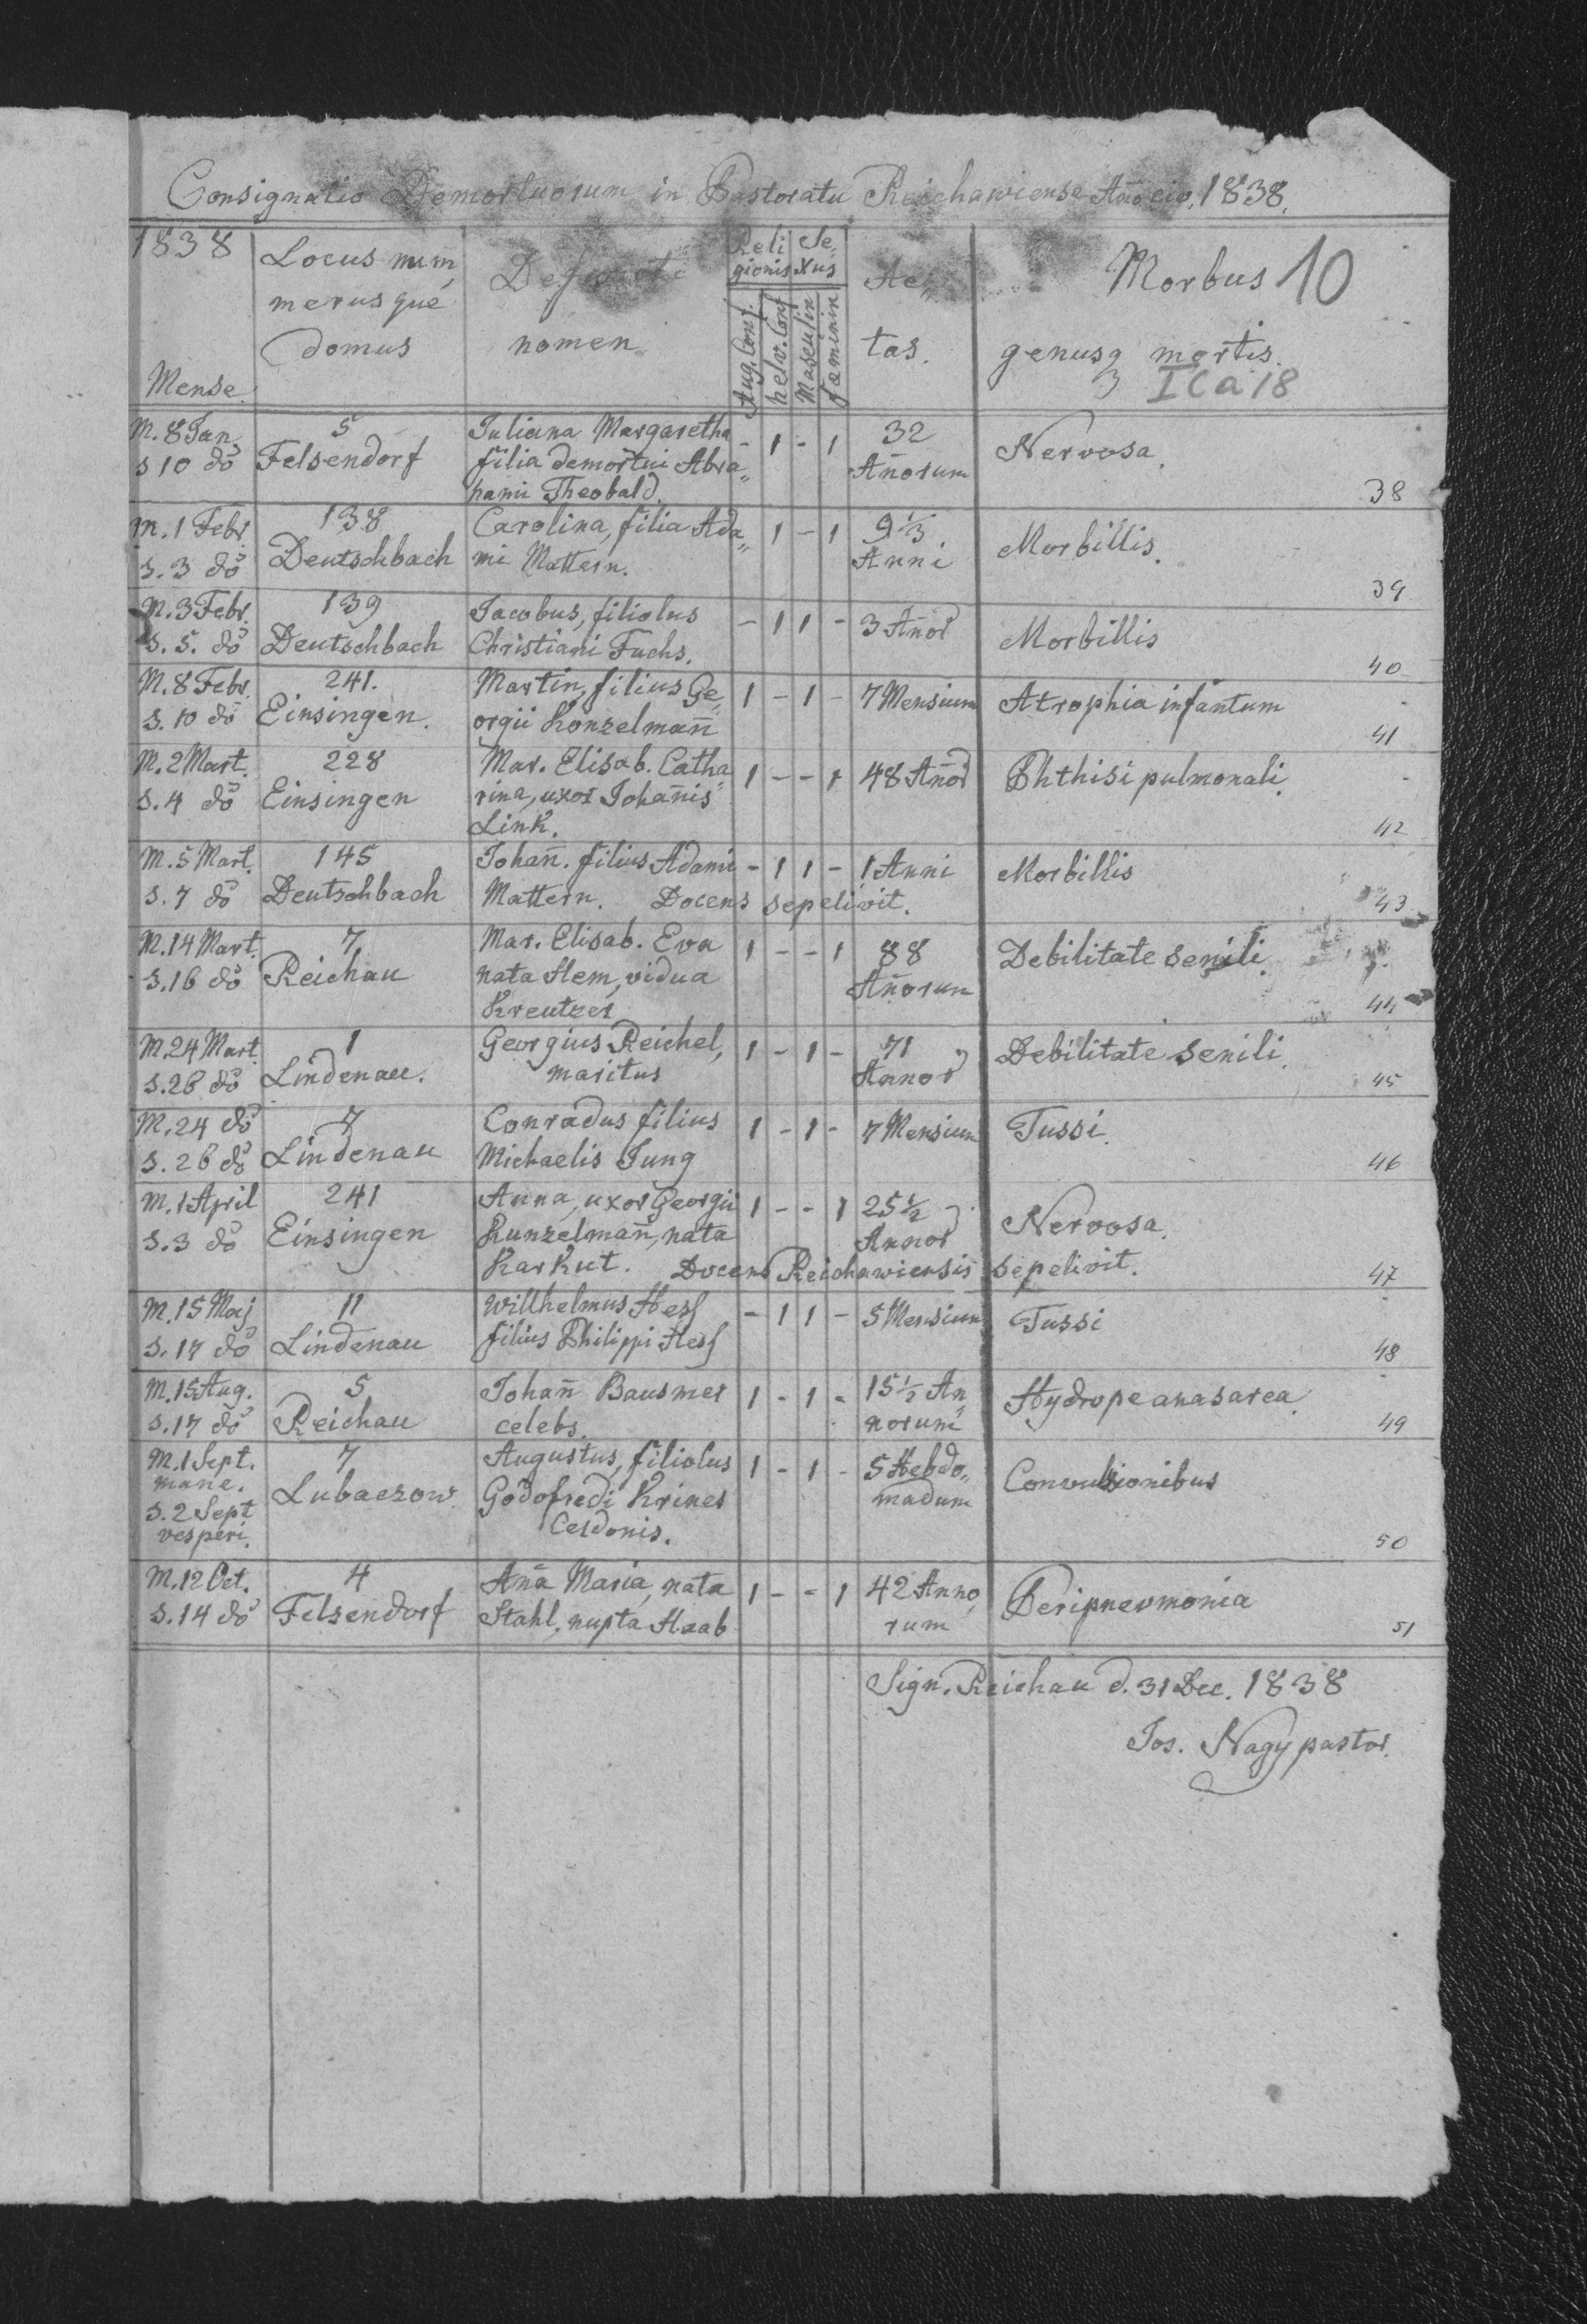 Consignatio Demortuorum in Pastoratu Reichawiense Año eio. 1838.
1838 Mense
Locus num, merusque domus
Defuncti nomen
Religionis Aug. Conf. helv. Conf
Sexus Masculin fæminin
Ae, tas.
Morbus 10
genusq mortis.
3 ICa18
M. 8 Jan. 5 Juliana Margaretha - 1 - 1 32 Nervosa.
s 10 do Felsendorf filia demortui Abra„ Añorum
hami Theobald. 38
M. 1 Febr. 138 Carolina, filia Ada„ 1 - 1 9 1/3 Morbillis.
s. 3 do Deutschbach mi Mattern. Anni
39
M. 3 Febr. 139 Jacobus, filiolus - 1 1 - 3 Añor Morbillis
s. 5. do Deutschbach Christiani Fuchs.
40
M. 8 Febr. 241. Martin, filius Ge„ 1 - 1 - 7 Mensium Atrophia infantum
s. 10 do Einsingen. orgii Konzelmañ
41
M. 2 Mart. 228 Mar. Elisab. Catha 1 - - 1 48 Añor Phthisi pulmonali.
s. 4 do Einsingen rina, uxor Johañis
Link. 42
M. 5 Mart. 145 Johañ. filius Adami - 1 1 - 1 Anni Morbillis
s. 7 do Deutschbach Mattern. Docens sepelivit.
43
M. 14 Mart. 7 Mar. Elisab. Eva 1 - - 1 88 Debilitate senili.
s. 16 do Reichau nata Hem, vidua Añorum
Kreutzer 44
M. 24 Mart. 1 Georgius Reichel, 1 - 1 - 71 Debilitate senili.
s. 26 do Lindenau. maritus Annor
45
M. 24 do 7 Conradus filius 1 - 1 - 7 Mensium Tussi.
s. 26 do Lindenau Michaelis Jung
46
M. 1 April 241 Anna, uxor Georgii 1 - - 1 25 1/2 Nervosa.
s. 3 do Einsingen Kunzelmañ, nata Annor
Karkut. Docens Reichawiensis sepelivit.
47
M. 15 Maj 11 Willhelmus Heß - 1 1 - 5 Mensium Tussi
s. 17 do Lindenau filius Philippi Heß
48
M. 15 Aug. 5 Johañ Bausmer 1 - 1 - 15 1/2 An Hydrope anasarca.
s. 17 do Reichau celebs. norum
49
M. 1 Sept. 7 Augustus, filiolus 1 - 1 - 5 Hebdo„ Convulsionibus
mane. Lubaczow. Godofredi Krines madum
s. 2 Sept Cerdonis.
vesperi. 50
M. 12 Oct. 4 Aña Maria, nata 1 - - 1 42 Anno, Peripnevmonia
s. 14 do Felsendorf Stahl, nupta Haab rum
51
Sign. Reichau d. 31 Dec. 1838
Jos. Nagy pastor.